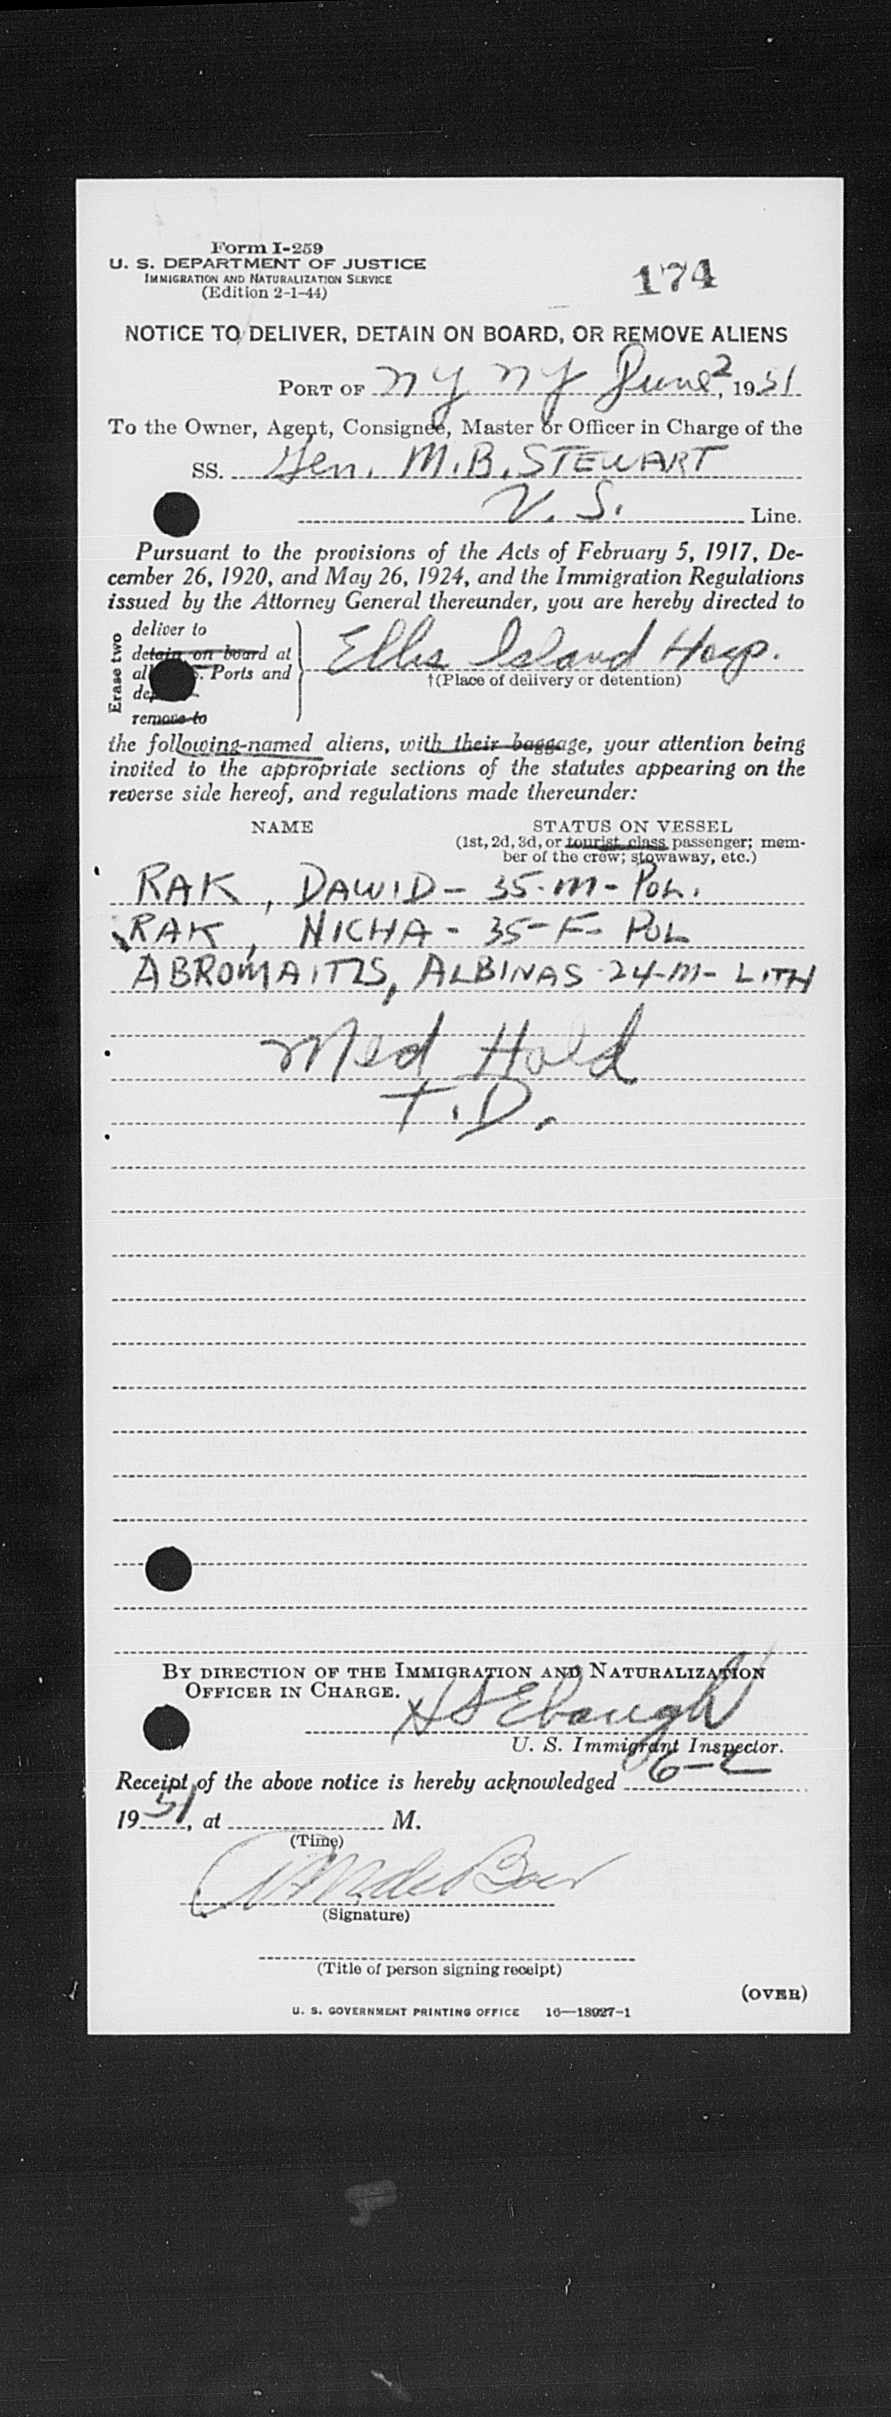 Form I-259
U. S. DEPARTMENT OF JUSTICE
IMMIGRATION AND NATURALIZATION SERVICE
(Edition 2-1-44)
174
NOTICE TO DELIVER, DETAIN ON BOARD, OR REMOVE ALIENS
PORT OF NY NY June 2, 1951
To the Owner, Agent, Consignee, Master or Officer in Charge of the
SS. Gen. M.B. STEWART
U. S. Line.
Pursuant to the provisions of the Acts of February 5, 1917, De-
cember 26, 1920, and May 26, 1924, and the Immigration Regulations
issued by the Attorney General thereunder, you are hereby directed to
Erase two
deliver to
detain on board at
Ports and
remove to
Ellis Island Hosp.
†(Place of delivery or detention)
the following-named aliens, with their baggage, your attention being
invited to the appropriate sections of the statutes appearing on the
reverse side hereof, and regulations made thereunder:
NAME STATUS ON VESSEL
(1st, 2d, 3d, or tourist class passenger; mem-
ber of the crew; stowaway, etc.)
RAK, DAWID - 35-M- POL.
RAK, NICHA - 35-F- POL
ABROMAITIS, ALBINAS - 24-M- LITH
Med Hold
T.D.
BY DIRECTION OF THE IMMIGRATION AND NATURALIZATION
OFFICER IN CHARGE.
H S Ebaugh
U. S. Immigrant Inspector.
Receipt of the above notice is hereby acknowledged 6-2
1951, at M.
(Time)
(Signature)
(Title of person signing receipt)
(OVER)
U. S. GOVERNMENT PRINTING OFFICE 16—18927-1